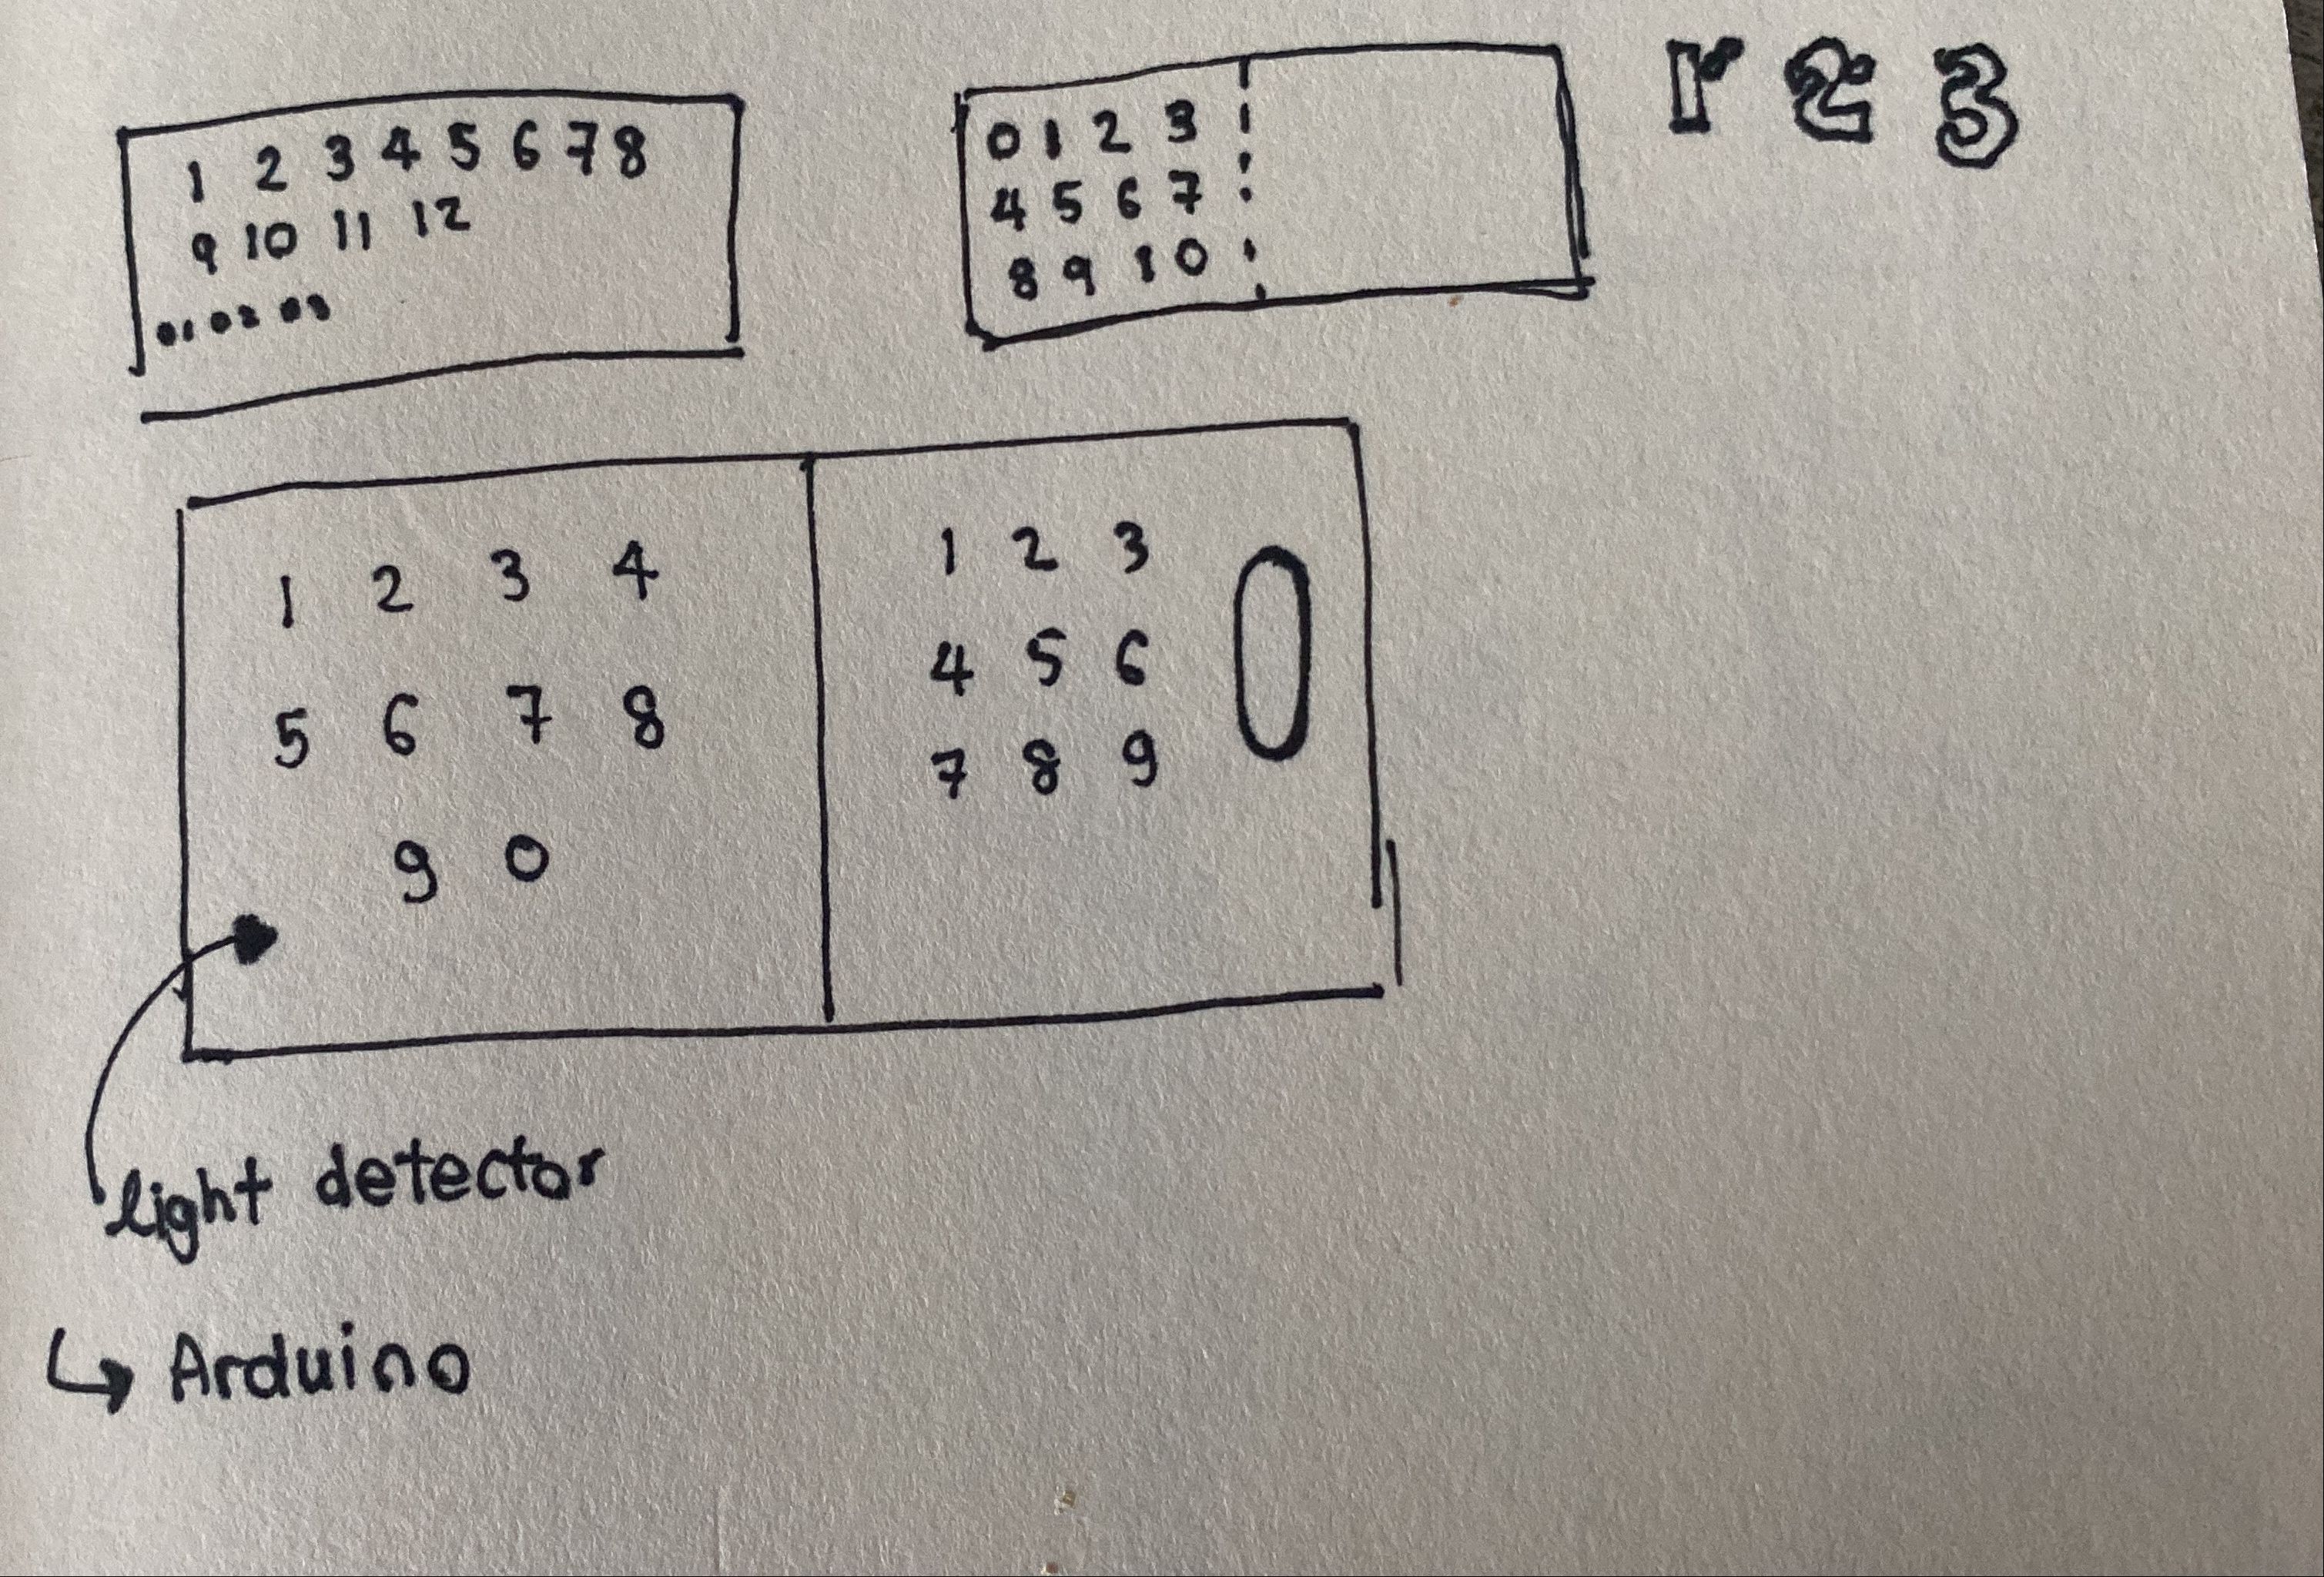 1 2 3 4 5 6 7 8
9 10 11 12
01 02 03
0 1 2 3
4 5 6 7
8 9 10
1 2 3
1 2 3 4
5 6 7 8
9 0
1 2 3
4 5 6
7 8 9
0
light detector
↳ Arduino